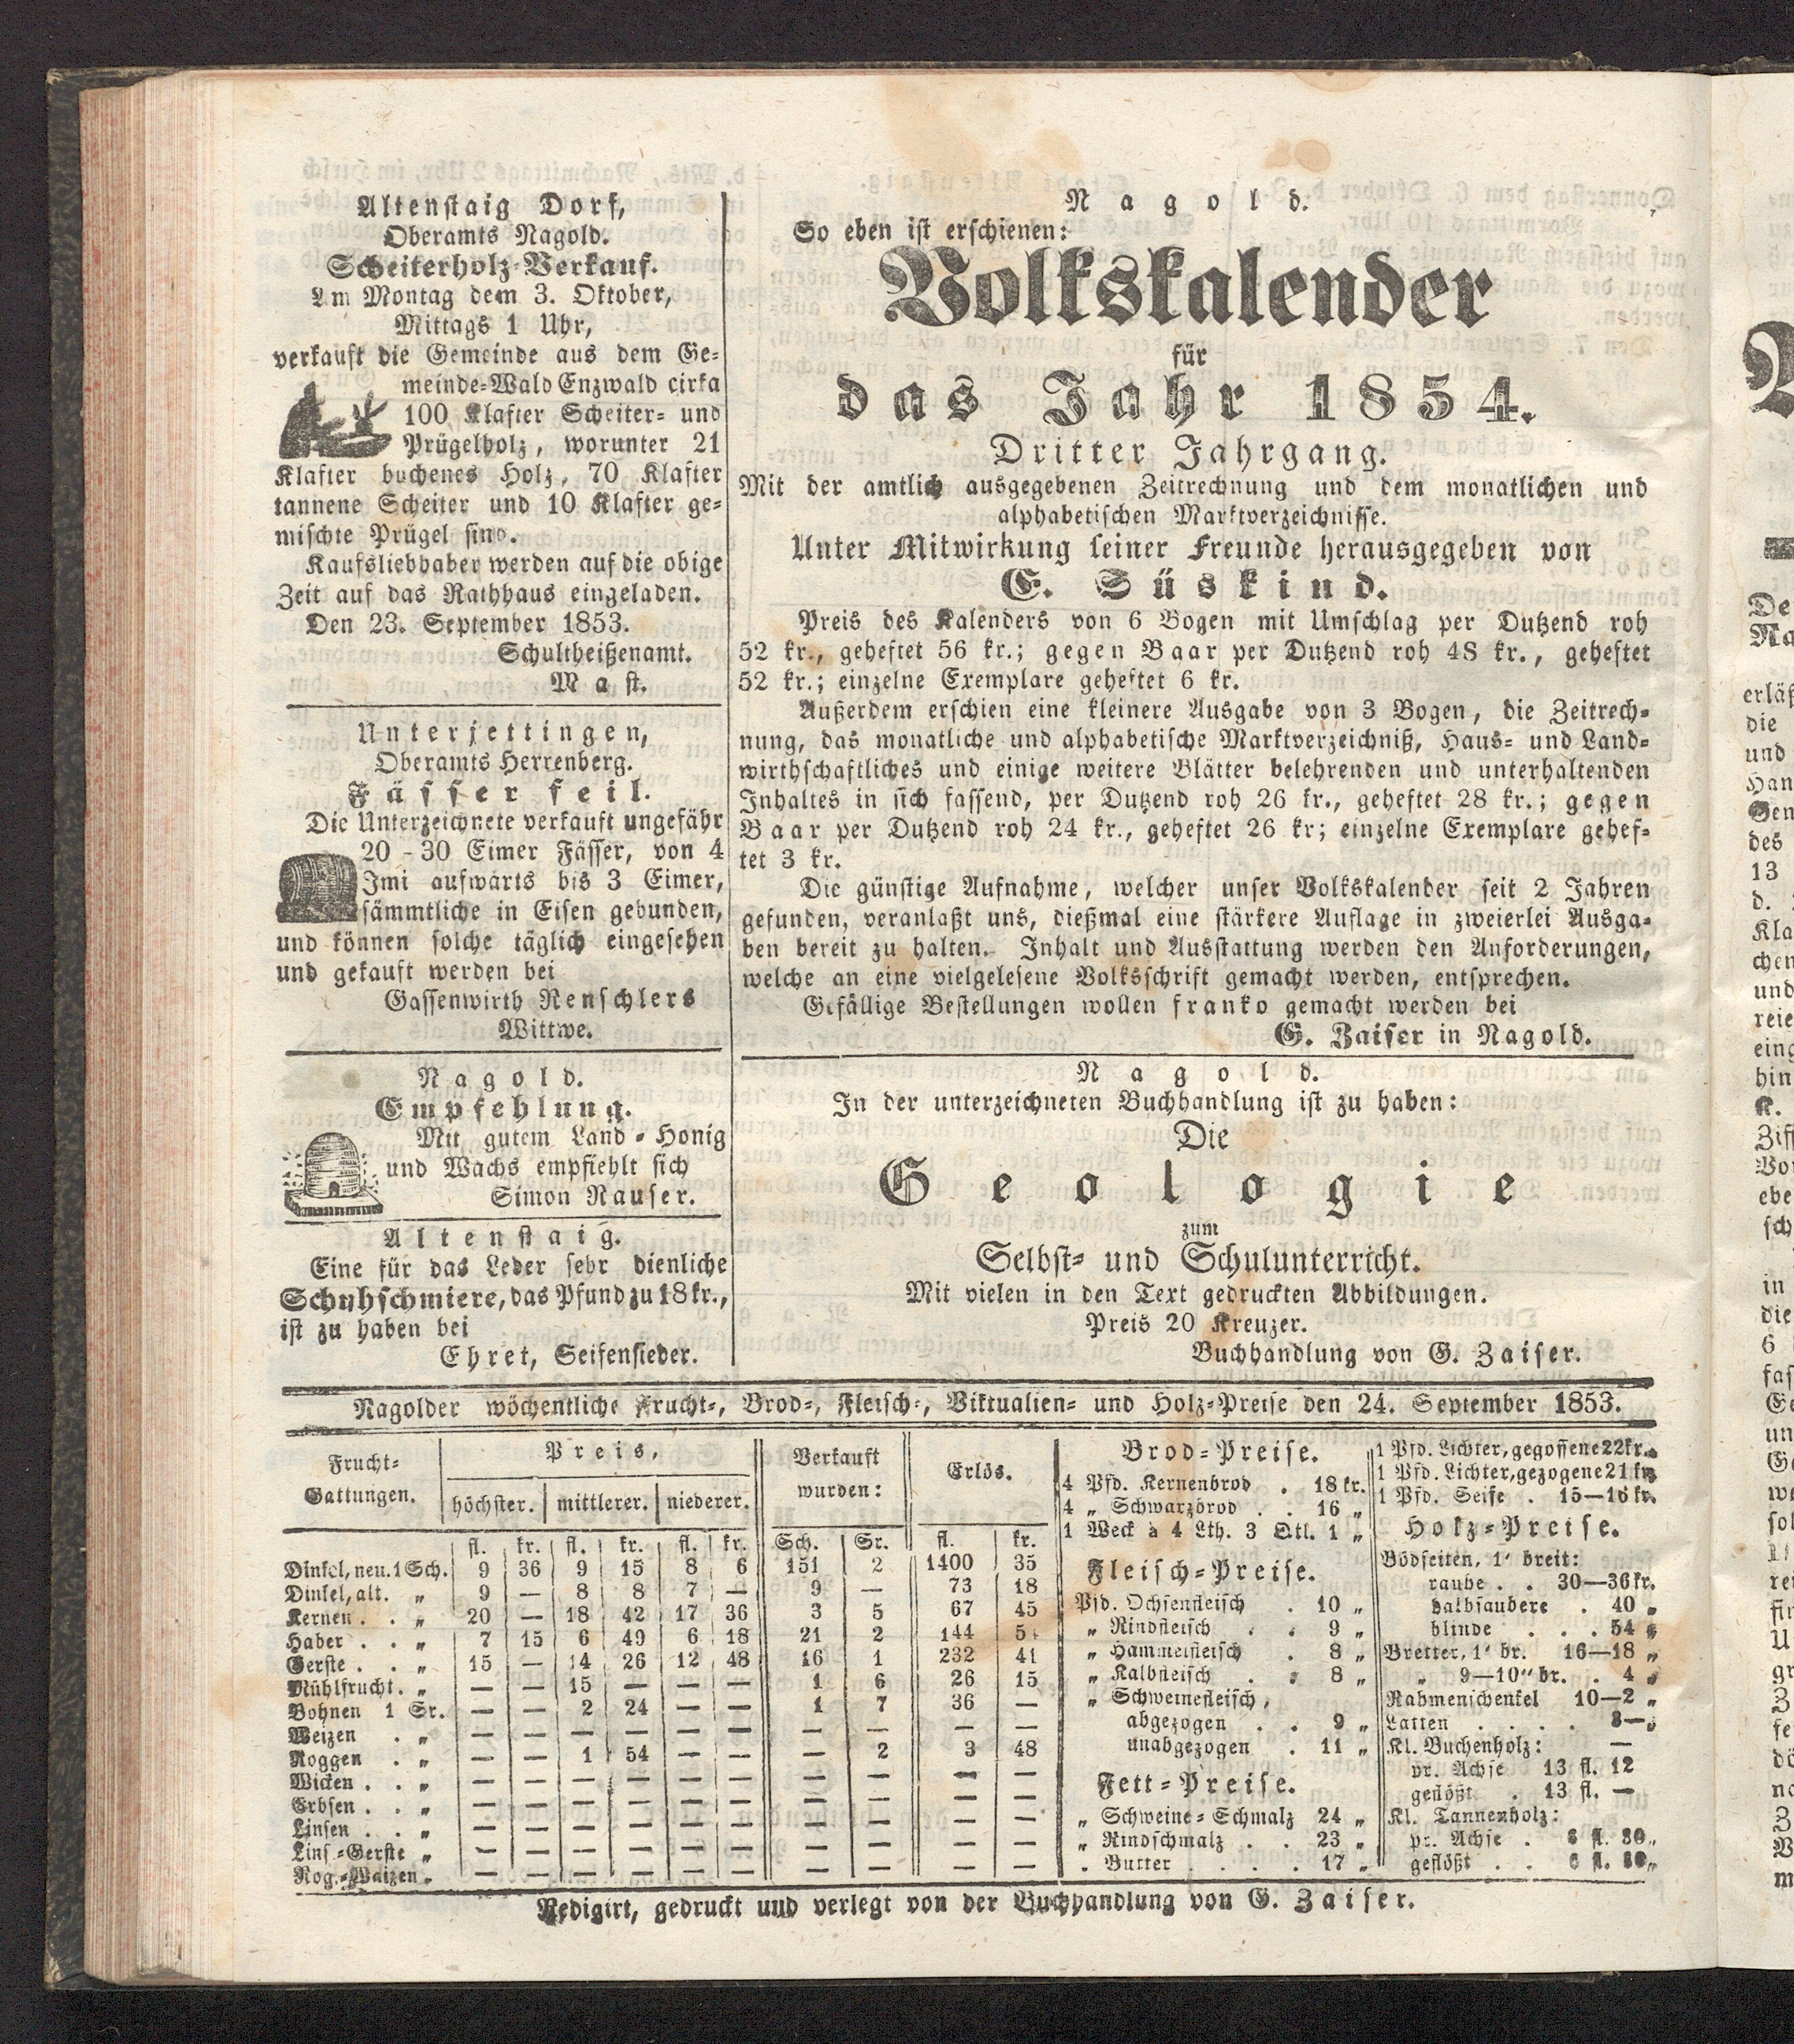 Altenstaig Dorf,
Oberamts Nagold.
Scheiterholz-Verkauf.
Am Montag dem 3. Oktober,
Mittags 1 Uhr,
verkauft die Gemeinde aus dem Ge-
meinde-Wald Enzwald cirka
100 Klafter Scheiter- und
Prügelholz, worunter 21
Klafter buchenes Holz, 70 Klafter
tannene Scheiter und 10 Klafter ge-
mischte Prügel sind.
Kaufsliebhaber werden auf die obige
Zeit auf das Rathhaus eingeladen.
Den 23. September 1853.
Schultheißenamt.
Mast.
Unterjettingen,
Oberamts Herrenberg.
Fässer feil.
Die Unterzeichnete verkauft ungefähr
20 - 30 Eimer Fässer, von 4
Imi aufwärts bis 3 Eimer,
sämmtliche in Eisen gebunden,
und können solche täglich eingesehen
und gekauft werden bei
Gassenwirth Renschlers
Wittwe.
Nagold.
Empfehlung.
Mit gutem Land-Honig
und Wachs empfiehlt sich
Simon Rauser.
Altenstaig.
Eine für das Leder sehr dienliche
Schuhschmiere, das Pfund zu 18 kr.,
ist zu haben bei
Ehret, Seifensieder.
Nagold.
So eben ist erschienen:
Volkskalender
für
das Jahr 1854.
Dritter Jahrgang.
Mit der amtlich ausgegebenen Zeitrechnung und dem monatlichen und
alphabetischen Marktverzeichnisse.
Unter Mitwirkung seiner Freunde herausgegeben von
E. Süskind.
Preis des Kalenders von 6 Bogen mit Umschlag per Dutzend roh
52 kr., geheftet 56 kr.; gegen Baar per Dutzend roh 48 kr., geheftet
52 kr.; einzelne Exemplare geheftet 6 kr.
Außerdem erschien eine kleinere Ausgabe von 3 Bogen, die Zeitrech-
nung, das monatliche und alphabetische Marktverzeichniß, Haus- und Land-
wirthschaftliches und einige weitere Blätter belehrenden und unterhaltenden
Inhaltes in sich fassend, per Dutzend roh 26 kr., geheftet 28 kr.; gegen
Baar per Dutzend roh 24 kr., geheftet 26 kr; einzelne Exemplare gehef-
tet 3 kr.
Die günstige Aufnahme, welcher unser Volkskalender seit 2 Jahren
gefunden, veranlaßt uns, dießmal eine stärkere Auflage in zweierlei Ausga-
ben bereit zu halten. Inhalt und Ausstattung werden den Anforderungen,
welche an eine vielgelesene Volksschrift gemacht werden, entsprechen.
Gefällige Bestellungen wollen franko gemacht werden bei
G. Zaiser in Nagold.
Nagold.
In der unterzeichneten Buchhandlung ist zu haben:
Die
Geologie
zum
Selbst- und Schulunterricht.
Mit vielen in den Text gedruckten Abbildungen.
Preis 20 Kreuzer.
Buchhandlung von G. Zaiser.
Nagolder wöchentliche Frucht-, Brod-, Fleisch-, Viktualien- und Holz-Preise den 24. September 1853.
Frucht-Gattungen. Preis, Verkauft wurden: Erlös.
höchster. mittlerer. niederer.
fl. kr. fl. kr. fl. kr. Sch. Sr. fl. kr.
Dinkel, neu. 1 Sch. 9 36 9 15 8 6 151 2 1400 35
Dinkel, alt. „ 9 — 8 8 7 — 9 — 73 18
Kernen . . „ 20 — 18 42 17 36 3 5 67 45
Haber . . „ 7 15 6 49 6 18 21 2 144 5
Gerste . . „ 15 — 14 26 12 48 16 1 232 41
Mühlfrucht. „ — — 15 — — — 1 6 26 15
Bohnen 1 Sr. — — 2 24 — — 1 7 36 —
Weizen . „ — — — — — — — — — —
Roggen . „ — — 1 54 — — — 2 3 48
Wicken . . „ — — — — — — — — — —
Erbsen . . „ — — — — — — — — — —
Linsen . . „ — — — — — — — — — —
Lins.-Gerste „ — — — — — — — — — —
Rog.-Waizen „ — — — — — — — — — —
Brod-Preise.
4 Pfd. Kernenbrod . 18 kr.
4 „ Schwarzbrod . . 16 „
1 Weck à 4 Lth. 3 Qtl. 1 „
Fleisch-Preise.
Pfd. Ochsenfleisch . 10 „
„ Rindfleisch . . 9 „
„ Hammelfleisch . 8 „
„ Kalbfleisch . . 8 „
„ Schweinefleisch,
abgezogen . . 9 „
unabgezogen . 11 „
Fett-Preise.
„ Schweine-Schmalz 24 „
„ Rindschmalz . . 23 „
„ Butter . . . . 17 „
1 Pfd. Lichter, gegossene 22 kr.
1 Pfd. Lichter, gezogene 21 kr.
1 Pfd. Seife . 15—16 kr.
Holz-Preise.
Bödseiten, 1' breit:
rauhe . . 30—36 kr.
halbsaubere . 40 „
blinde . . . 54 „
Bretter, 1' br. 16—18 „
„ 9—10" br. . 4 „
Rahmenschenkel 10—2 „
Latten . . . . 3—
Kl. Buchenholz: —
pr. Achse 13 fl. 12
geflößt . 13 fl. —
Kl. Tannenholz:
pr. Achse . fl. 30 „
geflößt . . fl. „
Redigirt, gedruckt und verlegt von der Buchhandlung von G. Zaiser.